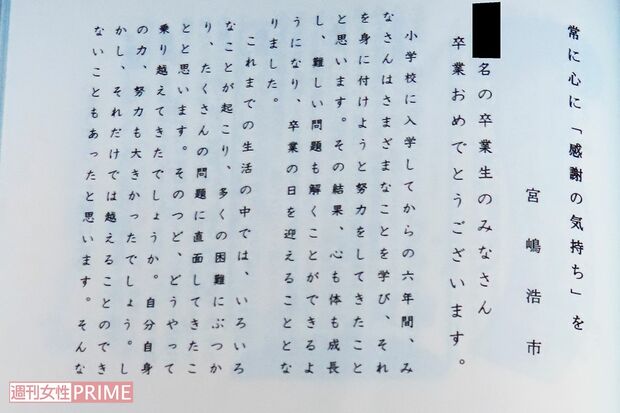 常に心に「感謝の気持ち」を
宮嶋浩市
名の卒業生のみなさん
卒業おめでとうございます。
小学校に入学してからの六年間、み
なさんはさまざまなことを学び、それ
を身に付けようと努力をしてきたこと
と思います。その結果、心も体も成長
し、難しい問題も解くことができるよ
うになり、卒業の日を迎えることとな
りました。
これまでの生活の中では、いろいろ
なことが起こり、多くの困難にぶつか
り、たくさんの問題に直面してきたこ
とと思います。そのつど、どうやって
乗り越えてきたでしょうか。自分自身
の力、努力も大きかったでしょう。し
かし、それだけでは越えることのでき
ないこともあったと思います。そんな
週刊女性PRIME